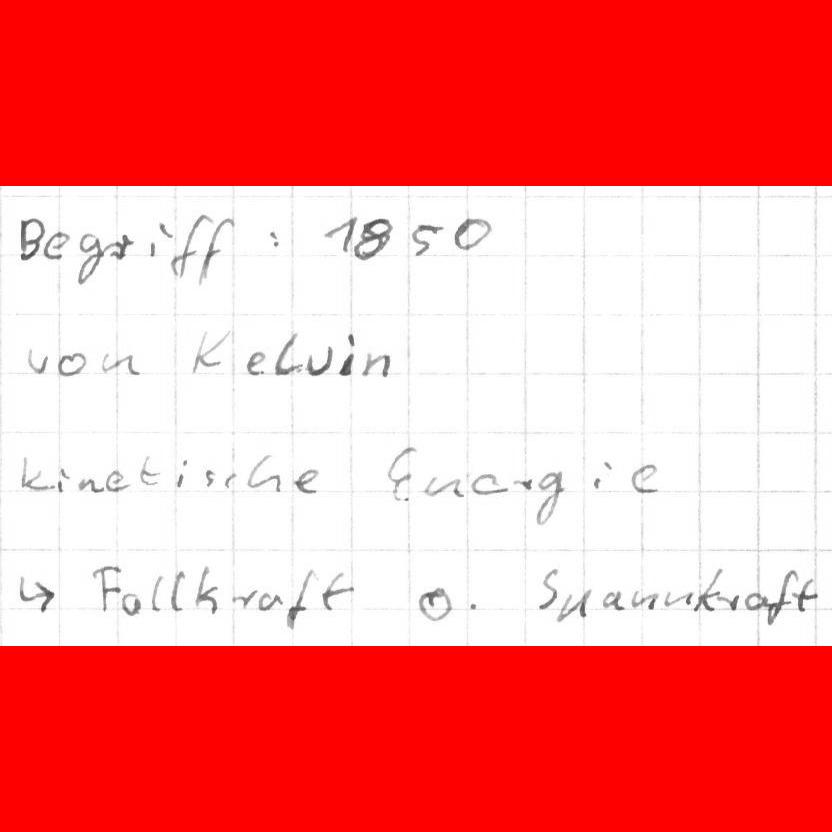 Begriff : 1850
von Kelvin
kinetische Energie
↳ Fallkraft o. Spannkraft